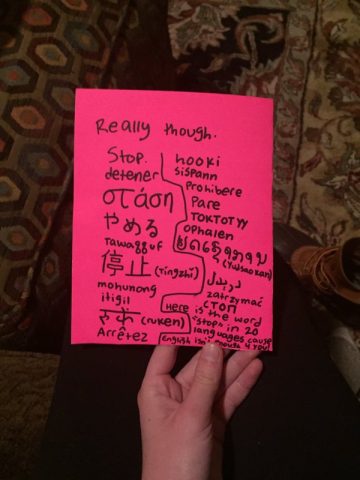 Really though.
Stop.
detener
στάση
やめる
Tawaqquf
停止 (Tingzhi)
mohunong
itigil
(ruken)
Arrêtez
hooki
Sispann
Prohibere
Pare
TOKTOTYY
ophalen
(Yutsaoxan)
zatrzymać
СТОП
Here is the word
"stop" in 20
languages cause
English isn't enough 4 you!